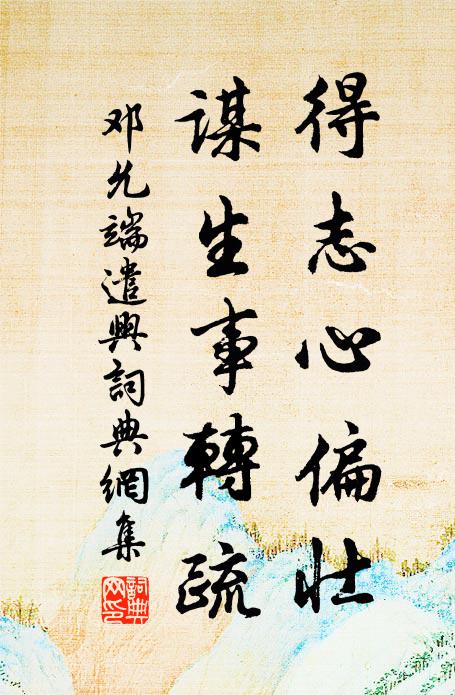 得志心偏壮
謀生事轉疏
邓允端遣興詞典網集
詞典網印